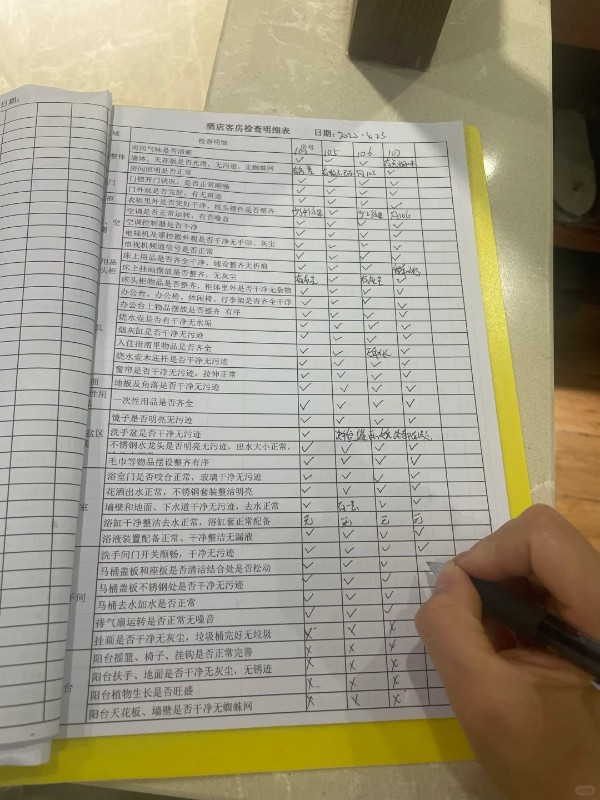 日期:
酒店客房检查明细表 日期:
域 检查明细 房号 105 106 107
整体 房间气味是否清新
墙体、天花板是否光滑,无污迹,无蜘蛛网
房间照明是否正常
门 门锁开门状况,是否正常顺畅
门外观是否完好,有无斑迹
柜 衣柜里外是否完好干净,梳头摆件是否整齐
空 空调是否正常运转,有否噪音
空调控制器是否干净
电视机及遥控器外观是否干净无手印,灰尘
电视机频道信号是否正常
用品 床上用品是否齐全干净,铺设整齐无折痕
头柜 床上挂画摆放是否整齐,无灰尘
床头柜物品是否整齐,柜体里外是否干净无杂物
办公台、办公椅、休闲椅、行李架是否齐全干净
办公台上物品摆放是否整齐 有序
烧水壶是否有干净无水垢
具 烟灰缸是否干净无污迹
入住指南里物品是否齐全
烧水壶木底托是否干净无污迹
窗帘是否干净无污迹,拉伸正常
面 地板及角落是否干净无污迹
性用 一次性用品是否齐全
镜子是否明亮无污迹
盆区 洗手盆是否干净无污迹
不锈钢水龙头是否明亮无污迹,出水大小正常,
毛巾等物品摆设整齐有序
浴室门是否咬合正常,玻璃干净无污迹
花洒出水正常,不锈钢套装整洁明亮
室 墙壁和地面、下水道干净无污迹,去水正常
浴缸干净整洁去水正常,浴缸套正常配备 无 无 无 无
浴液装置配备正常、干净整洁无漏液
洗手间门开关顺畅,干净无污迹
马桶盖板和座板是否清洁结合处是否松动
手间 马桶盖板不锈钢处是否干净无污迹
马桶去水加水是否正常
排气扇运转是否正常无噪音
挂画是否干净无灰尘,垃圾桶完好无垃圾
阳台摇篮、椅子、挂钩是否正常完善
阳台扶手、地面是否干净无灰尘,无锈迹
台 阳台植物生长是否旺盛
阳台天花板、墙壁是否干净无蜘蛛网